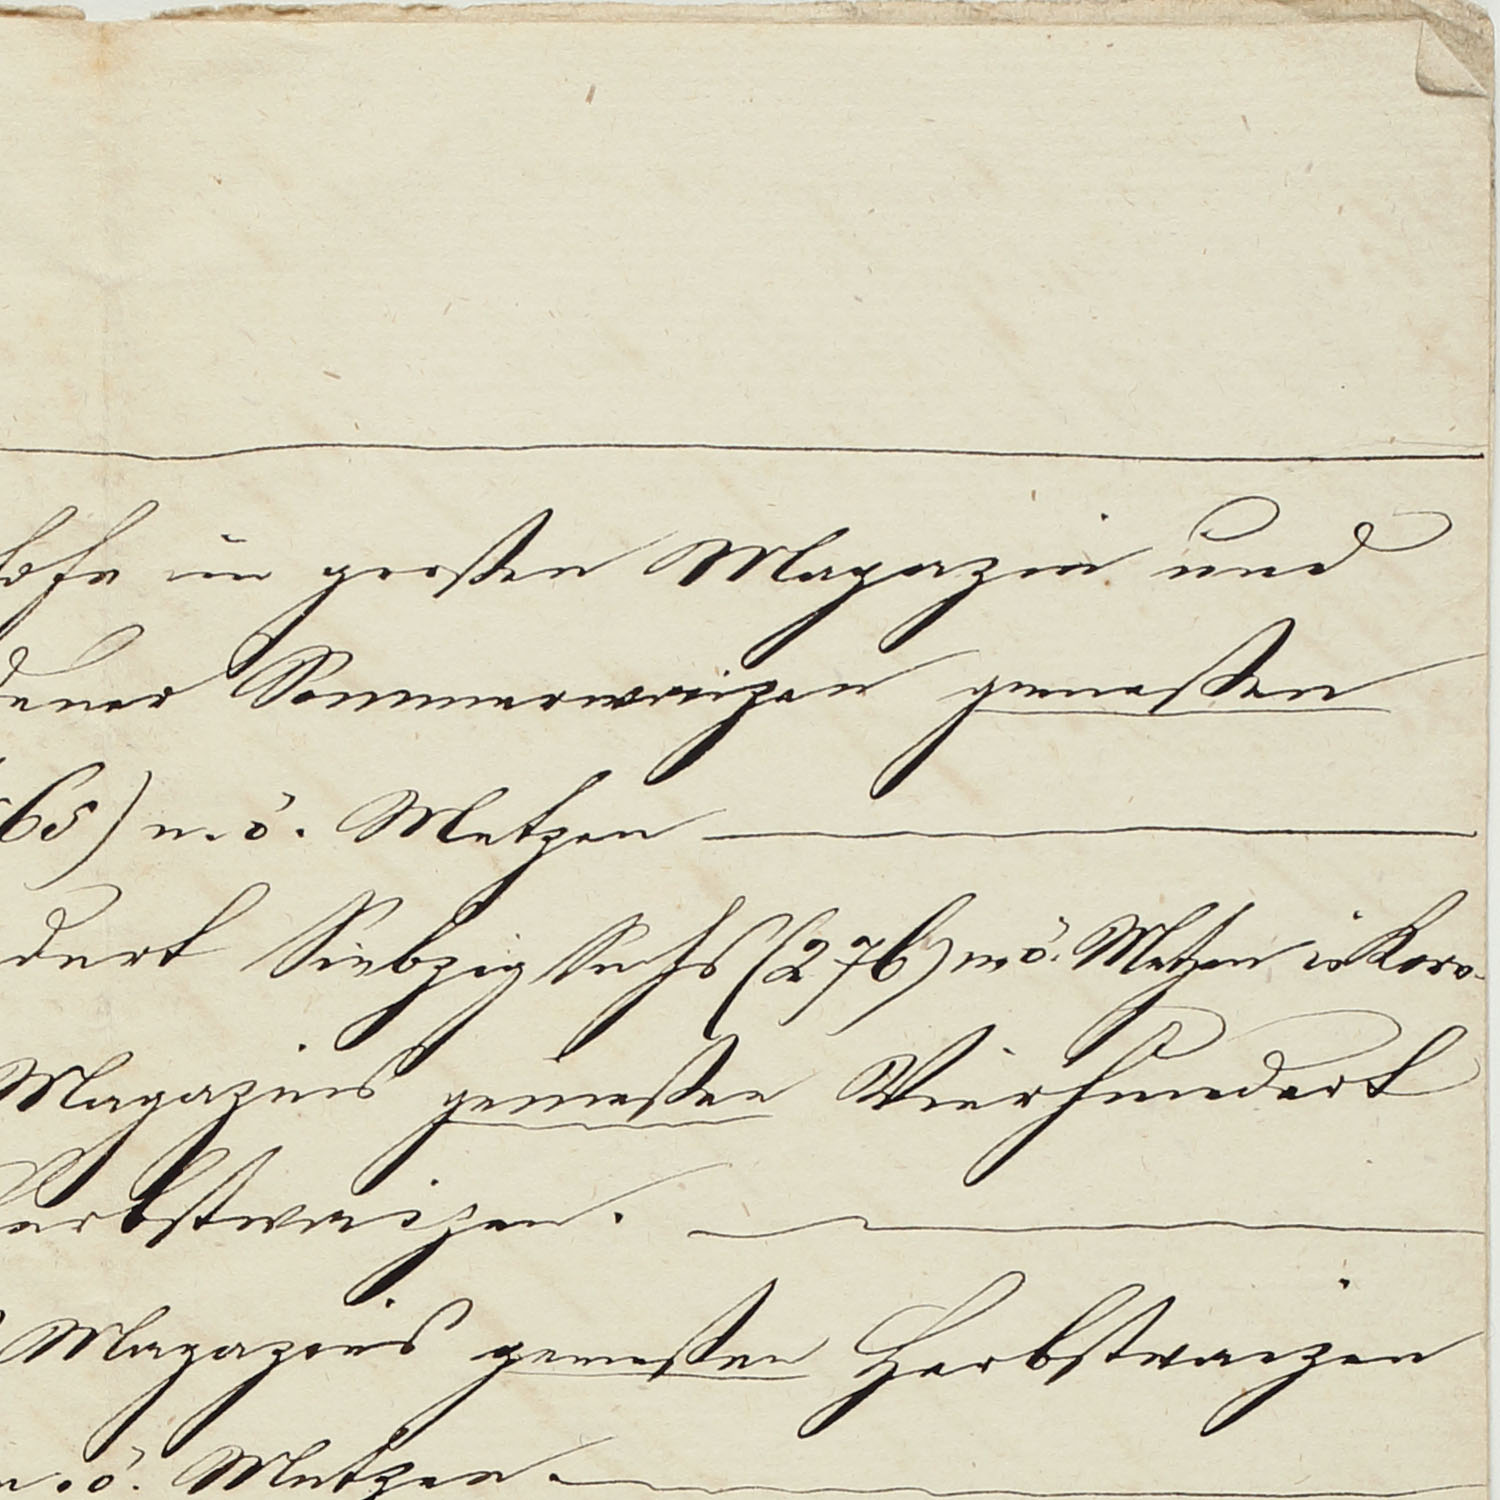 hofe im großen Magazin und
dener Sommerweizen gemeßen
65) n. ö. Metzen
dert Siebzig Sechs (276) n. ö. Metzen in Koro-
Magazins gemeßen Vierhundert
Herbstweizen.
Magazins gemeßen Herbstweizen
n. ö. Metzen.